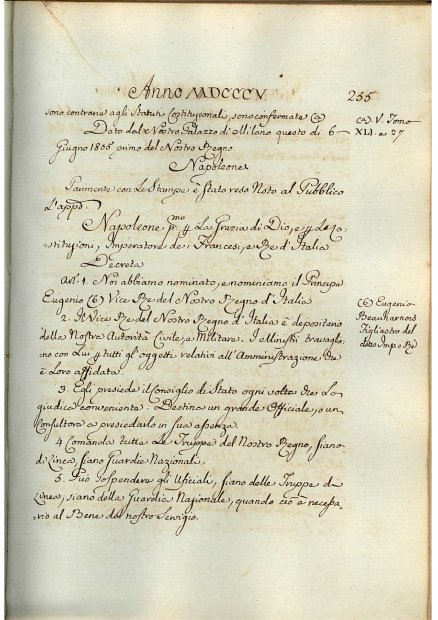 Anno MDCCCV.
255
sono contrarie agli Statuti Costituzionali, sono confermate (a)
Dato dal Nostro Palazzo di Milano questo dì 6
Giugno 1805 primo del Nostro Regno.
Napoleone
(a) V. Tomo
XLI. a 27
Parimente con Le Stampe è stato reso Noto al Pubblico
L'appo.
Napoleone pmo p La Grazia di Dio, e p Le Co=
=stituzioni, Imperatore de' Francesi, e Re d'Italia
Decreta
Art. 1. Noi abbiamo nominato, e nominiamo il Principe
Eugenio (6) Vice Re del Nostro Regno d'Italia
(6) Eugenio
Beauharnois
Figliastro del
detto Imp. e Re
2. Il Vice Re del Nostro Regno d'Italia è depositario
della Nostra Autorità Civile, e Militare. I Ministri travaglia
no con Lui p tutti gl'oggetti relativi all'Amministrazione che
è Loro affidata.
3. Egli presiede il Consiglio di Stato ogni volta che Lo
giudica conveniente. Destina un grande Officiale, o un
Consultore a presiedarlo in sua assenza.
4 Comanda tutte Le Truppe del Nostro Regno, siano
di Linea, siano Guardie Nazionali.
5. Può sospendere gli Uficiali, siano delle Truppe di
Linea, siano della Guardia Nazionale, quando ciò è necessa-
rio al Bene del nostro Servigio.